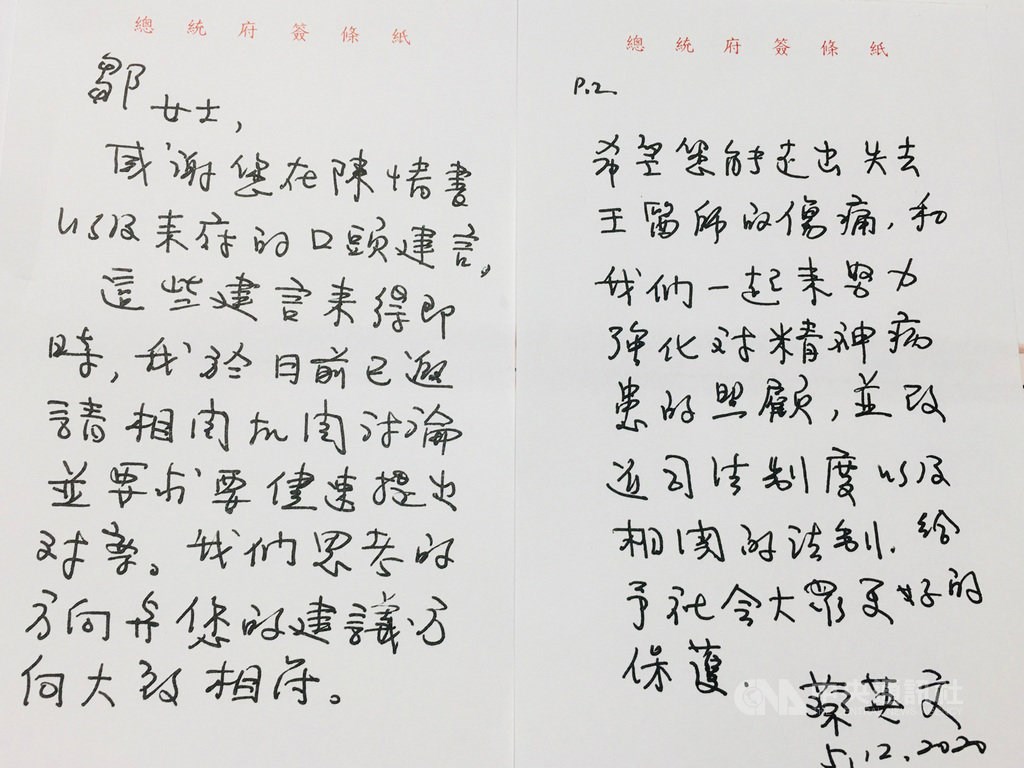 總統府簽條紙
鄒女士,
感謝您在陳情書
以及來府的口頭建言。
這些建言來得即
時,我於日前已邀
請相関机関討論
並要求要儘速提出
对案。我们思考的
方向与您的建議方
向大致相符。
總統府簽條紙
P.2
希望您能走出失去
王醫師的傷痛,和
我们一起来努力
強化对精神病
患的照顧,並改
進司法制度以及
相関的法制,给
予社会大眾更好的
保護.
蔡英文
5.12.2020
CNA 中央通訊社